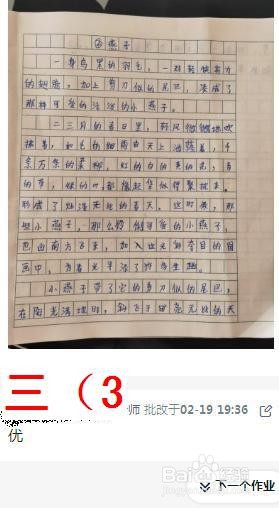 ②燕子
一身乌黑的羽毛，一对轻快有力
的翅膀，加上剪刀似的尾巴，凑成了
那样可爱的活泼的小燕子。
二三月的春日里，轻风微微地吹
拂着，如毛的细雨由天上洒落着，千
条万条的柔柳，红的白的黄的花，青
的草，绿的叶都像赶集似得聚拢来，
形成了烂漫无比的春天。这时候，那
些小燕子，那么伶俐可爱的小燕子，
也由南方飞来，加入这光彩夺目的图
画中，为春光平添了许多生趣。
小燕子带了它的剪刀似的尾巴，
在阳光满地时，斜飞于旷亮无比的天
三（3
师 批改于02-19 19:36
优
Baidu经验
下一个作业